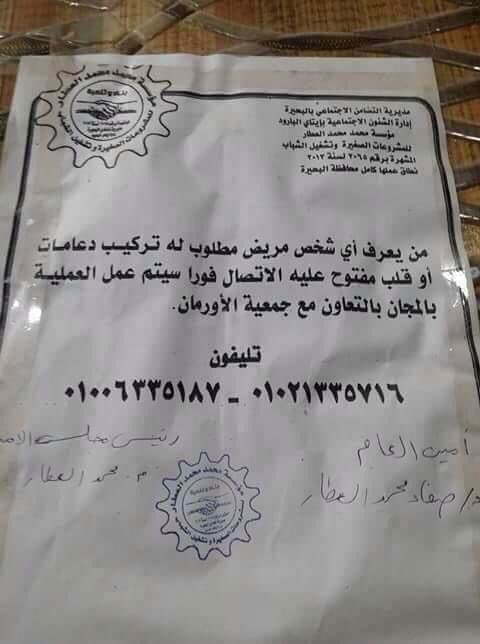 مؤسسة محمد محمد العطار
بناء و تنمية
للمشروعات الصغيرة وتشغيل الشباب
مديرية التضامن الاجتماعي بالبحيرة
إدارة الشئون الاجتماعية بإيتاي البارود
مؤسسة محمد محمد العطار
للمشروعات الصغيرة وتشغيل الشباب
المشهرة برقم ٢٠٦٥ لسنة ٢٠١٢
نطاق عملها كامل محافظة البحيرة
من يعرف أي شخص مريض مطلوب له تركيب دعامات
أو قلب مفتوح عليه الاتصال فورا سيتم عمل العملية
بالمجان بالتعاون مع جمعية الأورمان.
تليفون
٠١٠٢١٣٣٥٧١٦ - ٠١٠٠٦٣٣٥١٨٧
أمين العام
د/ صفاء محمد العطار
رئيس مجلس الأمناء
م. محمد العطار
مؤسسة محمد محمد العطار
بناء و تنمية
للمشروعات الصغيرة وتشغيل الشباب